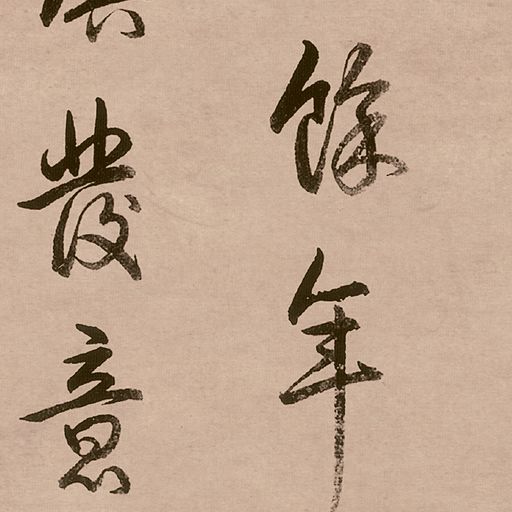 餘年
發意